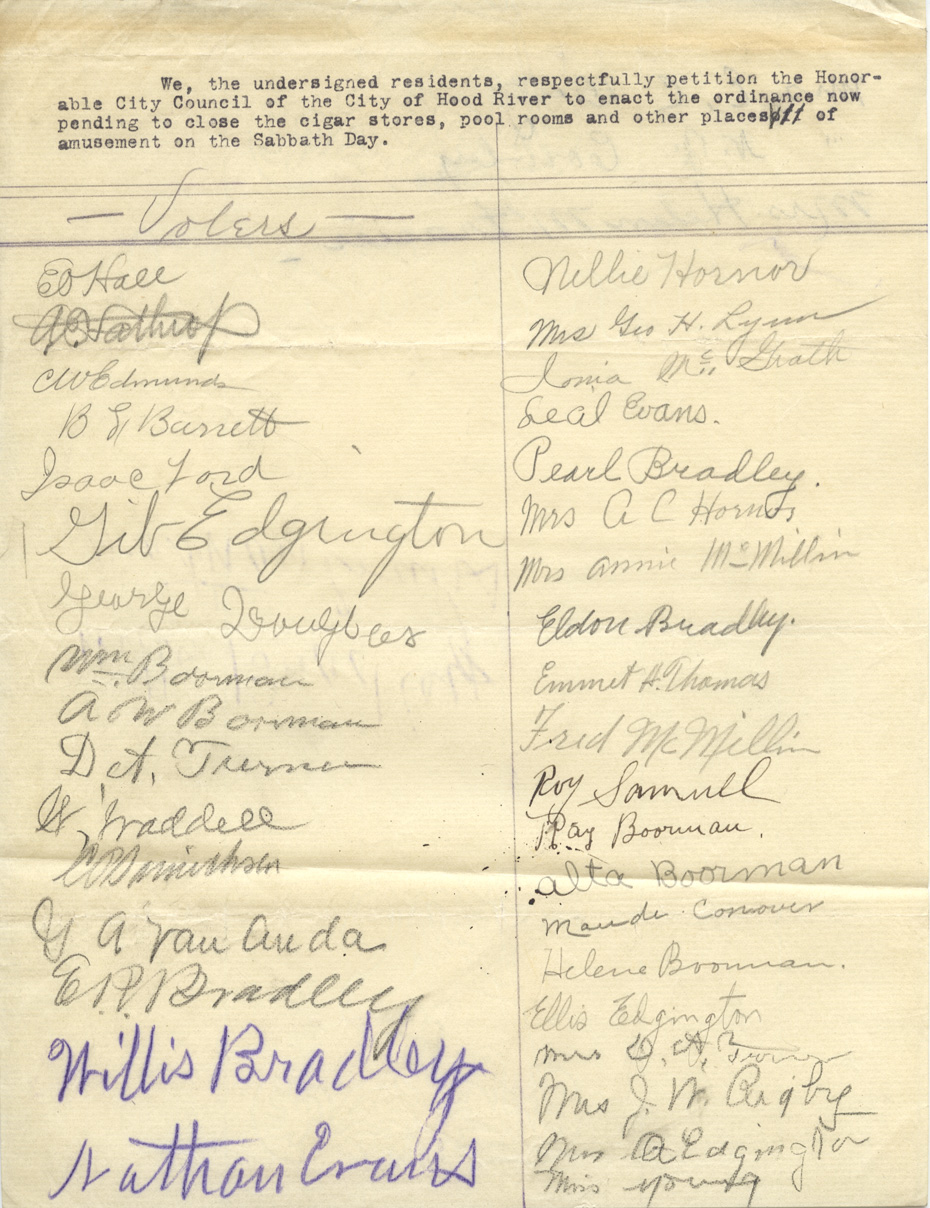 We, the undersigned residents, respectfully petition the Honor-
able City Council of the City of Hood River to enact the ordinance now
pending to close the cigar stores, pool rooms and other places of
amusement on the Sabbath Day.
— Voters —
EO Hall
CW Edmunds
B E Barrett
Isaac Ford
Gib Edgington
George Douglas
Wm. Boorman
A W Boorman
D. A. Turner
W. Waddell
A Van Auda
E.R. Bradley
Willis Bradley
Nathan Evans
Nellie Hornor
Mrs Geo H. Lynn
Mc Grath
Leal Evans.
Pearl Bradley.
Mrs A C
Mrs Annie McMillin
Eldon Bradley.
Emmet H. Thomas
Fred McMillin
Roy Samuell
Ray Boorman.
Alta Boorman
Maude Conover
Helene Boorman.
Ellis Edgington
Mrs D. A. Turner
Mrs J. W. Rigby
Mrs Edgington
Miss Young